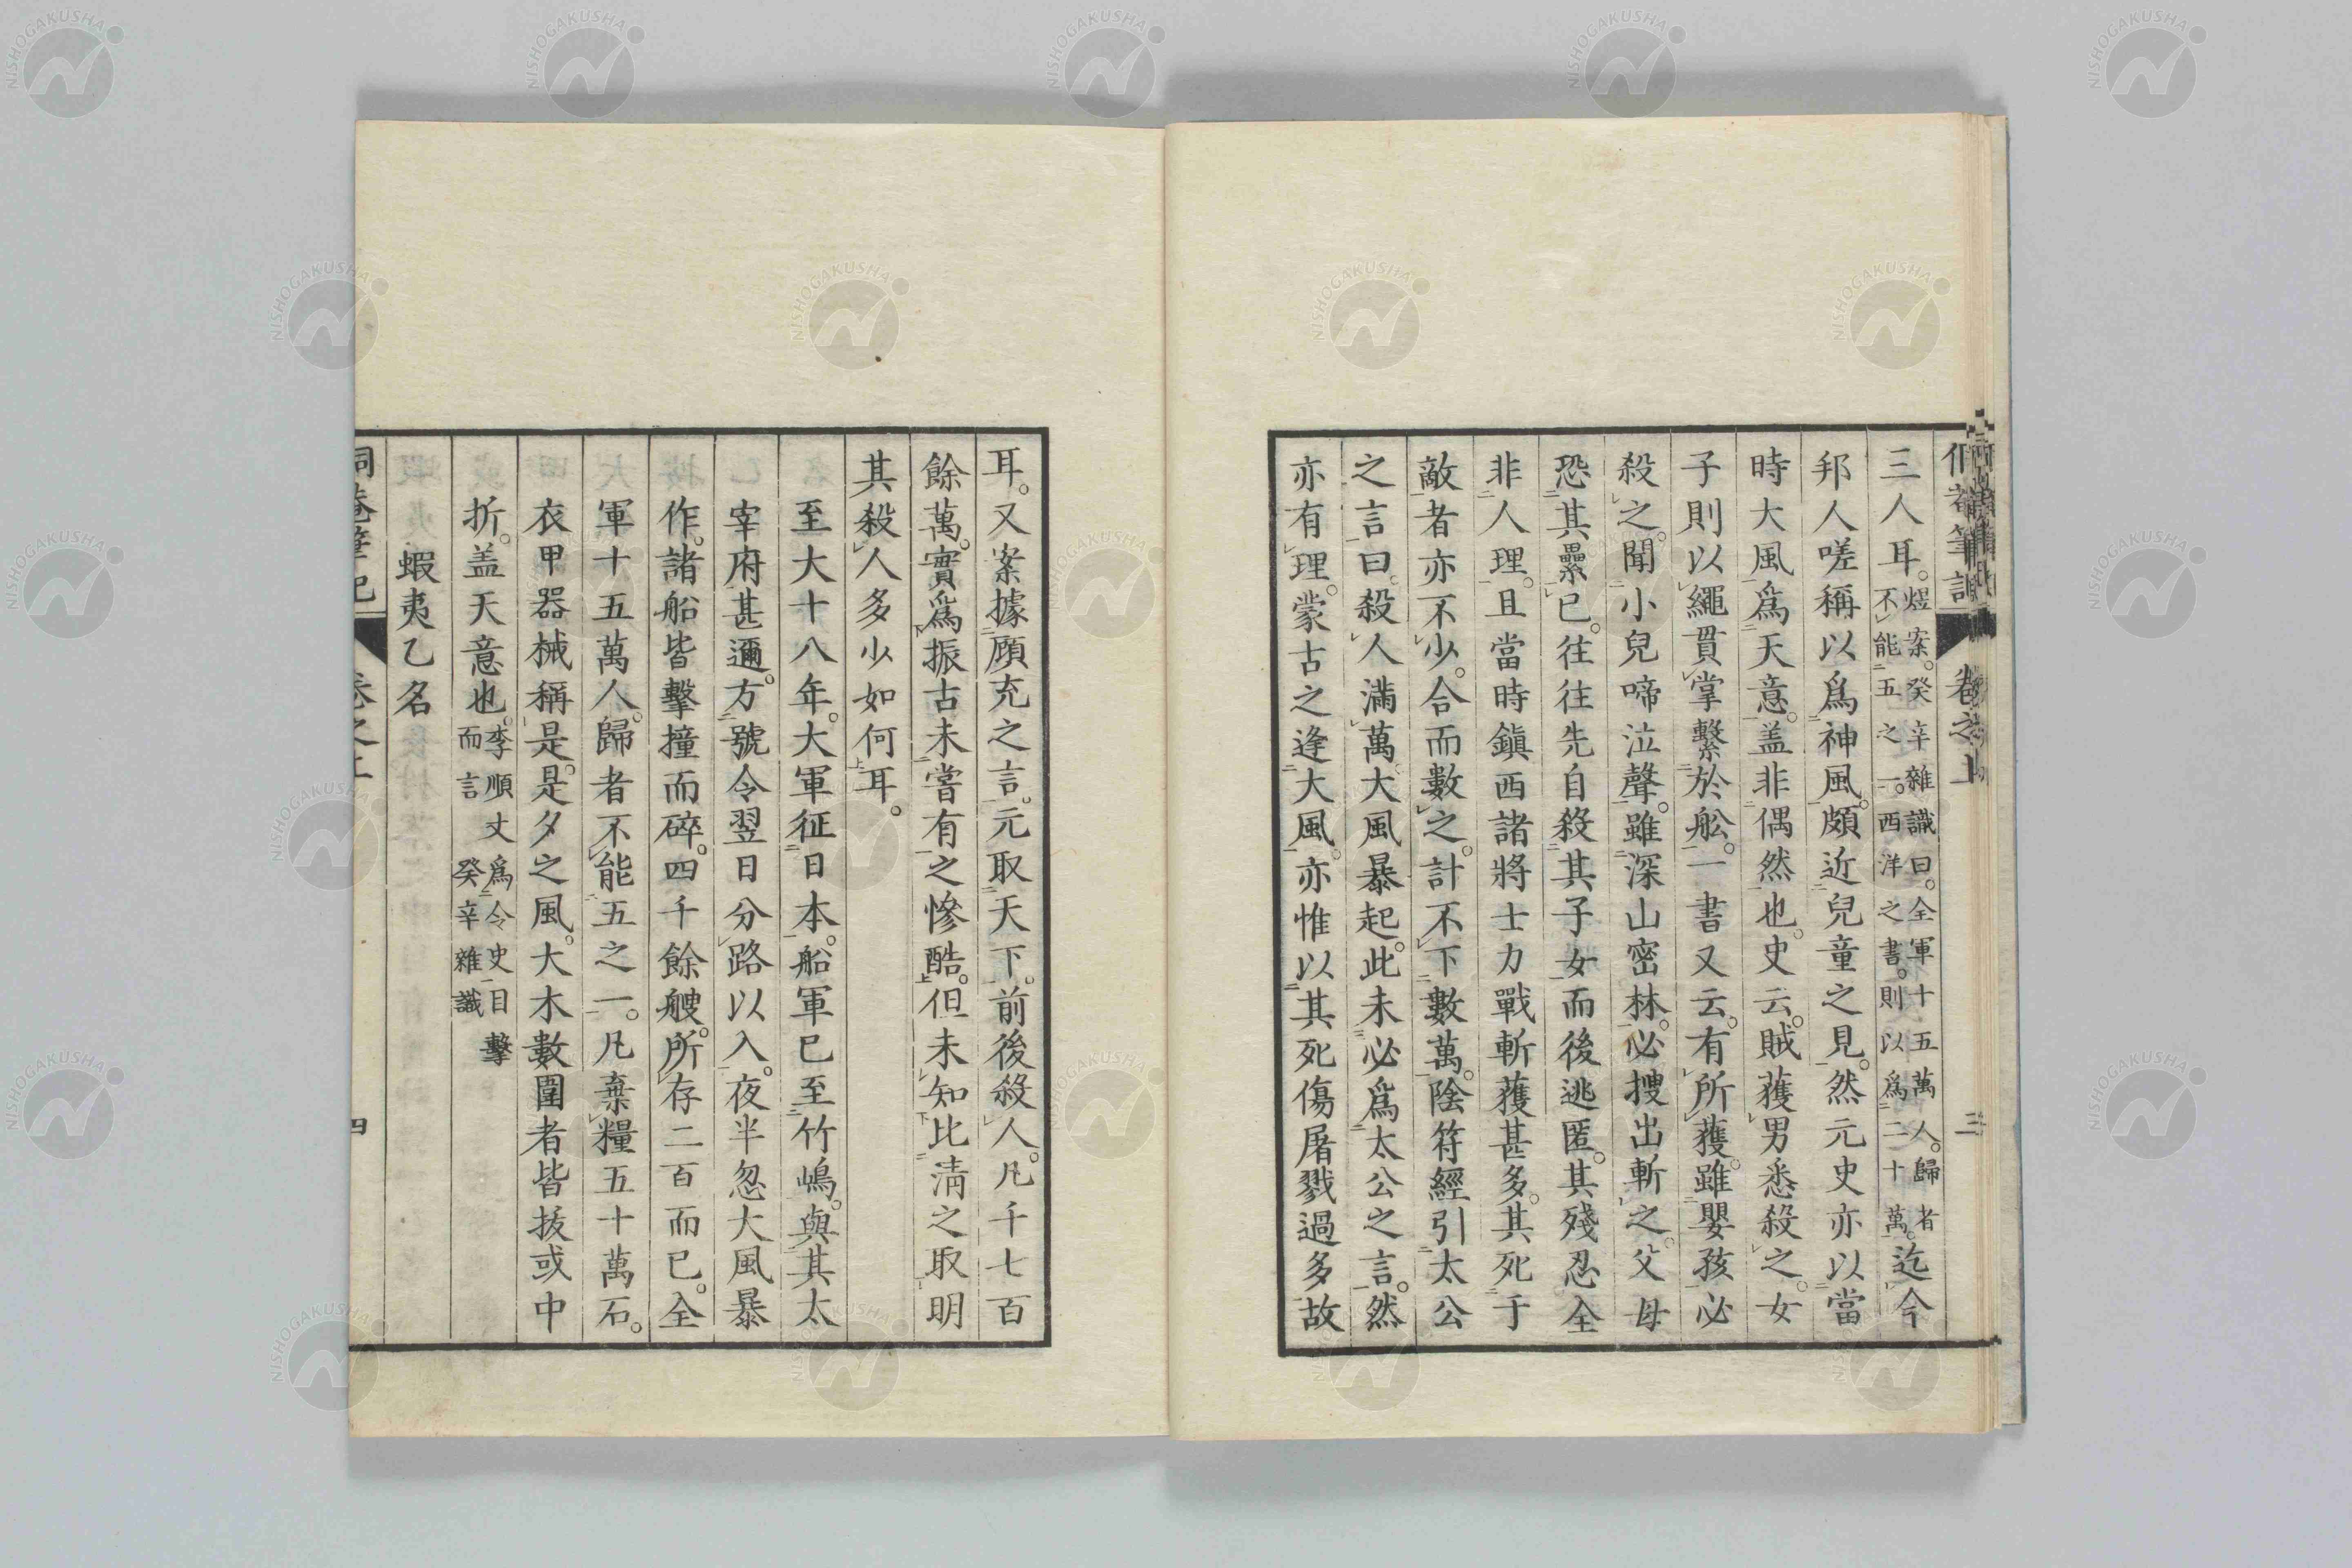 三人耳。煜案。癸辛雜識曰。全軍十五萬人。歸者不能五之一。西洋之書。則以爲二十萬。迄今
邦人嗟稱以爲神風。頗近兒童之見。然元史亦以當
時大風爲天意。盖非偶然也。史云。賊獲男悉殺之。女
子則以繩貫掌繫於舩。一書又云。有所獲。雖嬰孩必
殺之。聞小兒啼泣聲。雖深山密林。必搜出斬之。父母
恐其纍已。往往先自殺其子女而後逃匿。其殘忍全
非人理。且當時鎭西諸將士力戰斬獲甚多。其死于
敵者亦不少。合而數之。計不下數萬。陰符經引太公
之言曰。殺人滿萬。大風暴起。此未必爲太公之言。然
亦有理。蒙古之逢大風。亦惟以其死傷屠戮過多故
卷之上
三
耳。又案據顧充之言。元取天下。前後殺人。凡千七百
餘萬。實爲振古未嘗有之慘酷。但未知比淸之取明
其殺人多少如何耳。
至大十八年。大軍征日本。船軍已至竹嶋。與其太
宰府甚邇。方號令翌日分路以入。夜半忽大風暴
作。諸船皆擊撞而碎。四千餘艘。所存二百而已。全
軍十五萬人。歸者不能五之一。凡棄糧五十萬石。
衣甲器械稱是。是夕之風。大木數圍者皆拔或中
折。盖天意也。李順丈爲令史目擊而言 癸辛雜識
蝦夷乙名
四
NISHOGAKUSHA